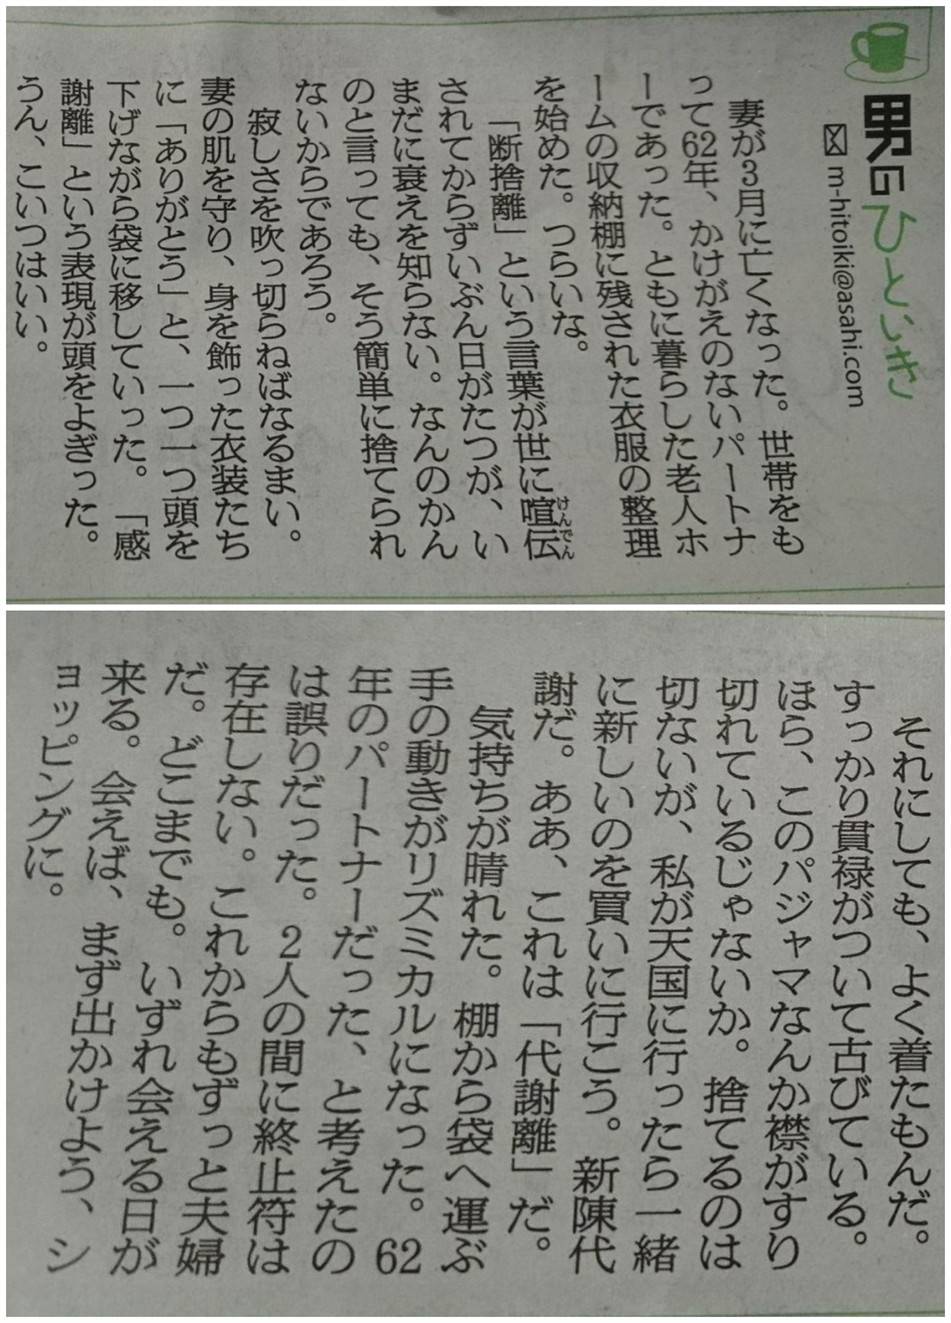 男のひといき
m-hitoiki@asahi.com
妻が3月に亡くなった。世帯をも
って62年、かけがえのないパートナ
ーであった。ともに暮らした老人ホ
ームの収納棚に残された衣服の整理
を始めた。つらいな。
「断捨離」という言葉が世に喧伝けんでん
されてからずいぶん日がたつが、い
まだに衰えを知らない。なんのかん
のと言っても、そう簡単に捨てられ
ないからであろう。
寂しさを吹っ切らねばなるまい。
妻の肌を守り、身を飾った衣装たち
に「ありがとう」と、一つ一つ頭を
下げながら袋に移していった。「感
謝離」という表現が頭をよぎった。
うん、こいつはいい。
それにしても、よく着たもんだ。
すっかり貫禄がついて古びている。
ほら、このパジャマなんか襟がすり
切れているじゃないか。捨てるのは
切ないが、私が天国に行ったら一緒
に新しいのを買いに行こう。新陳代
謝だ。ああ、これは「代謝離」だ。
気持ちが晴れた。棚から袋へ運ぶ
手の動きがリズミカルになった。62
年のパートナーだった、と考えたの
は誤りだった。2人の間に終止符は
存在しない。これからもずっと夫婦
だ。どこまでも。いずれ会える日が
来る。会えば、まず出かけよう、シ
ョッピングに。